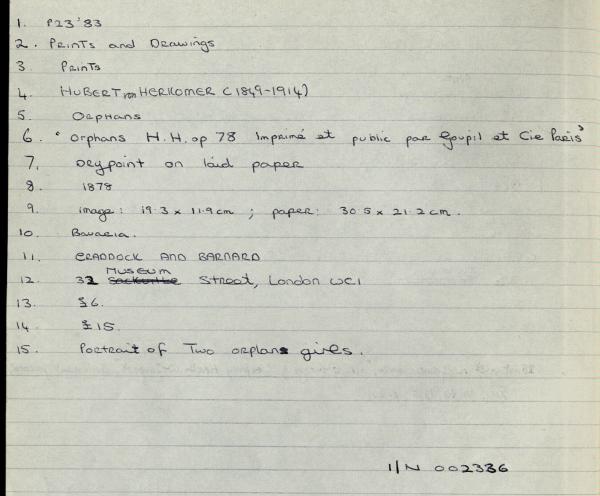 1. P23'83
2. Prints and Drawings
3. Prints
4. HUBERT von HERKOMER (1849-1914)
5. Orphans
6. "Orphans H.H. op 78 Imprimé et public par Goupil et Cie Paris"
7. Drypoint on laid paper
8. 1878
9. image: 19.3 x 11.9 cm ; paper: 30.5 x 21.2 cm.
10. Bavaria.
11. CRADDOCK AND BARNARD
12. 32 Museum Street, London WC1
13. £6.
14 £15.
15. Portrait of Two orplans gives.
I/N 002336